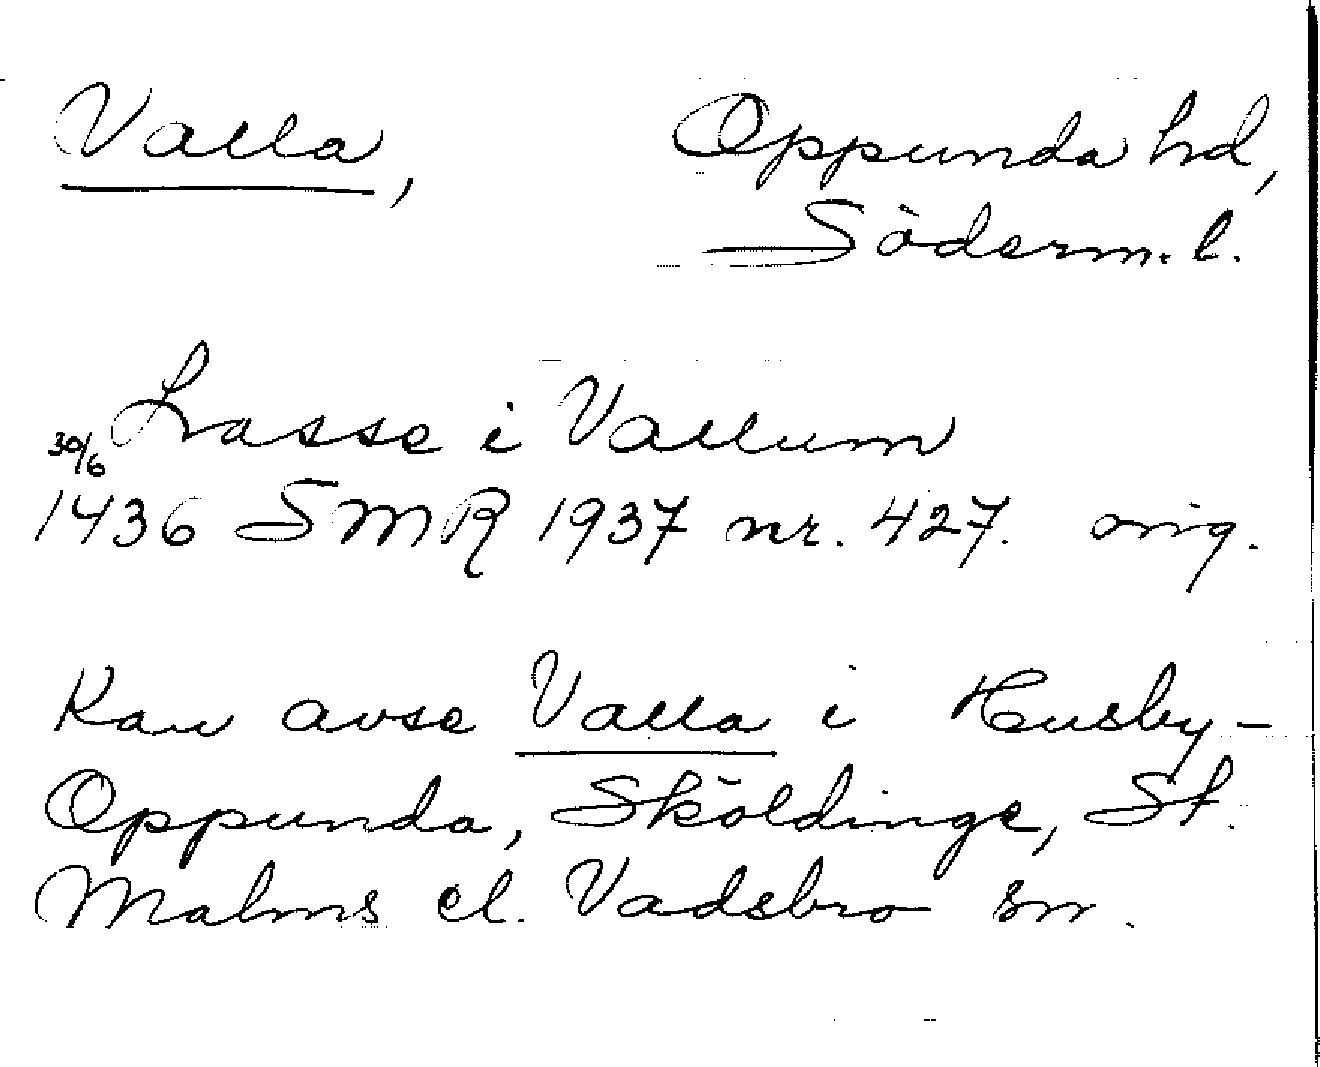 Valla, Oppunda hd,
Söderm. l.
Lasse i Vallum
30/6
1436 SMR 1937 nr. 427. orig.
Kan avse Valla i Husby-
Oppunda, Sköldinge, St.
Malms el. Vadsbro sn.